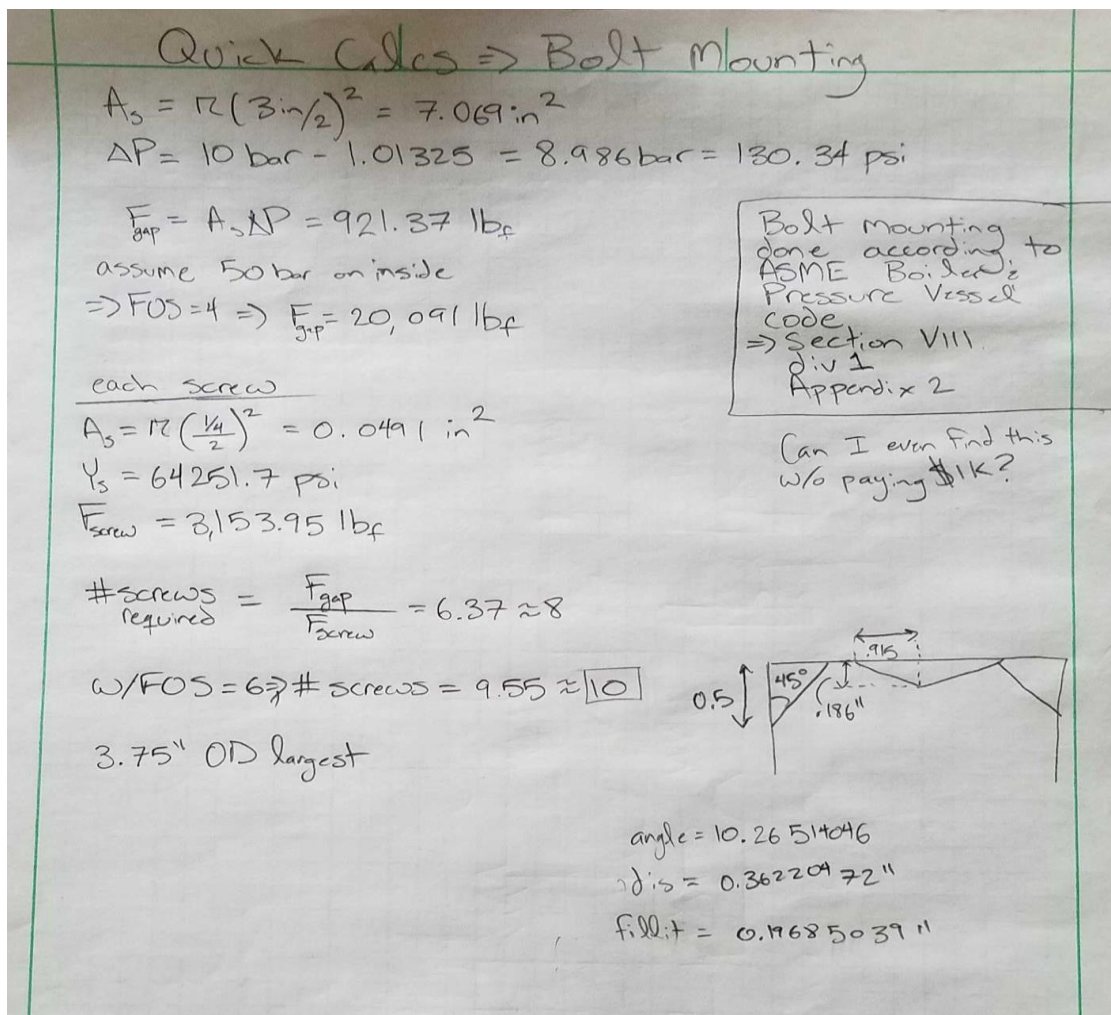 Quick Calcs => Bolt Mounting
As = π(3in/2)² = 7.069in²
ΔP = 10 bar - 1.01325 = 8.986bar = 130.34 psi
Fgap = AsΔP = 921.37 lbf
assume 50 bar on inside
=> FOS=4 => Fgap = 20,091 lbf
each screw
As = π(1/4/2)² = 0.0491 in²
Ys = 64251.7 psi
Fscrew = 3,153.95 lbf
#screws required = Fgap/Fscrew = 6.37 ≈ 8
w/FOS=6 => # screws = 9.55 ≈ 10
3.75" OD largest
Bolt mounting
done according to
ASME Boiler &
Pressure Vessel
code
=> Section VIII
div 1
Appendix 2
Can I even find this
w/o paying $1K?
.915
0.5
45°
.186"
angle = 10.26514046
dis = 0.36220472"
fillit = 0.19685039"